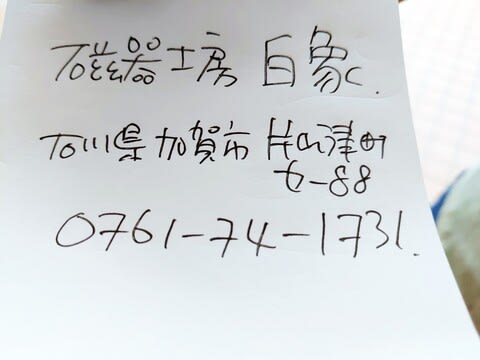 磁器工房 白象.
石川県加賀市 片山津町
セ-88
0761-74-1731.